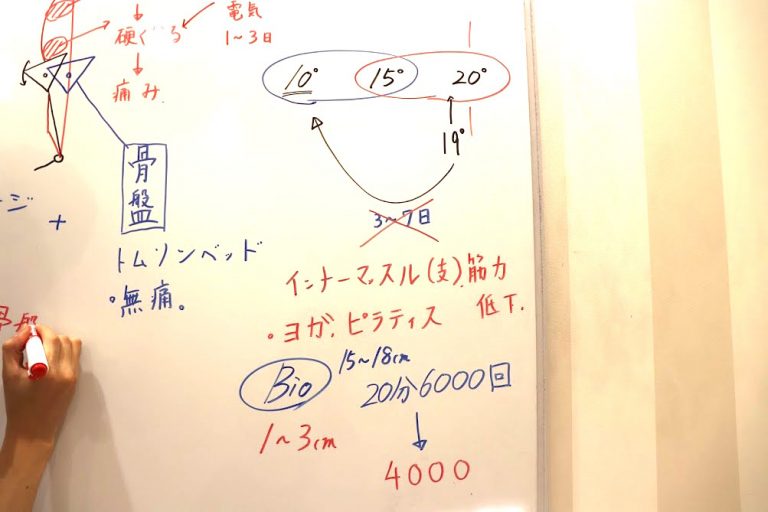 電気
硬くなる
1~3日
痛み
10° 15° 20°
19°
骨盤
3~7日
ージ
+
トムソンベッド
・無痛。
インナーマッスル(支)筋力
低下.
・ヨガ.ピラティス
Bio
15~18cm
20分6000回
1~3cm
4000